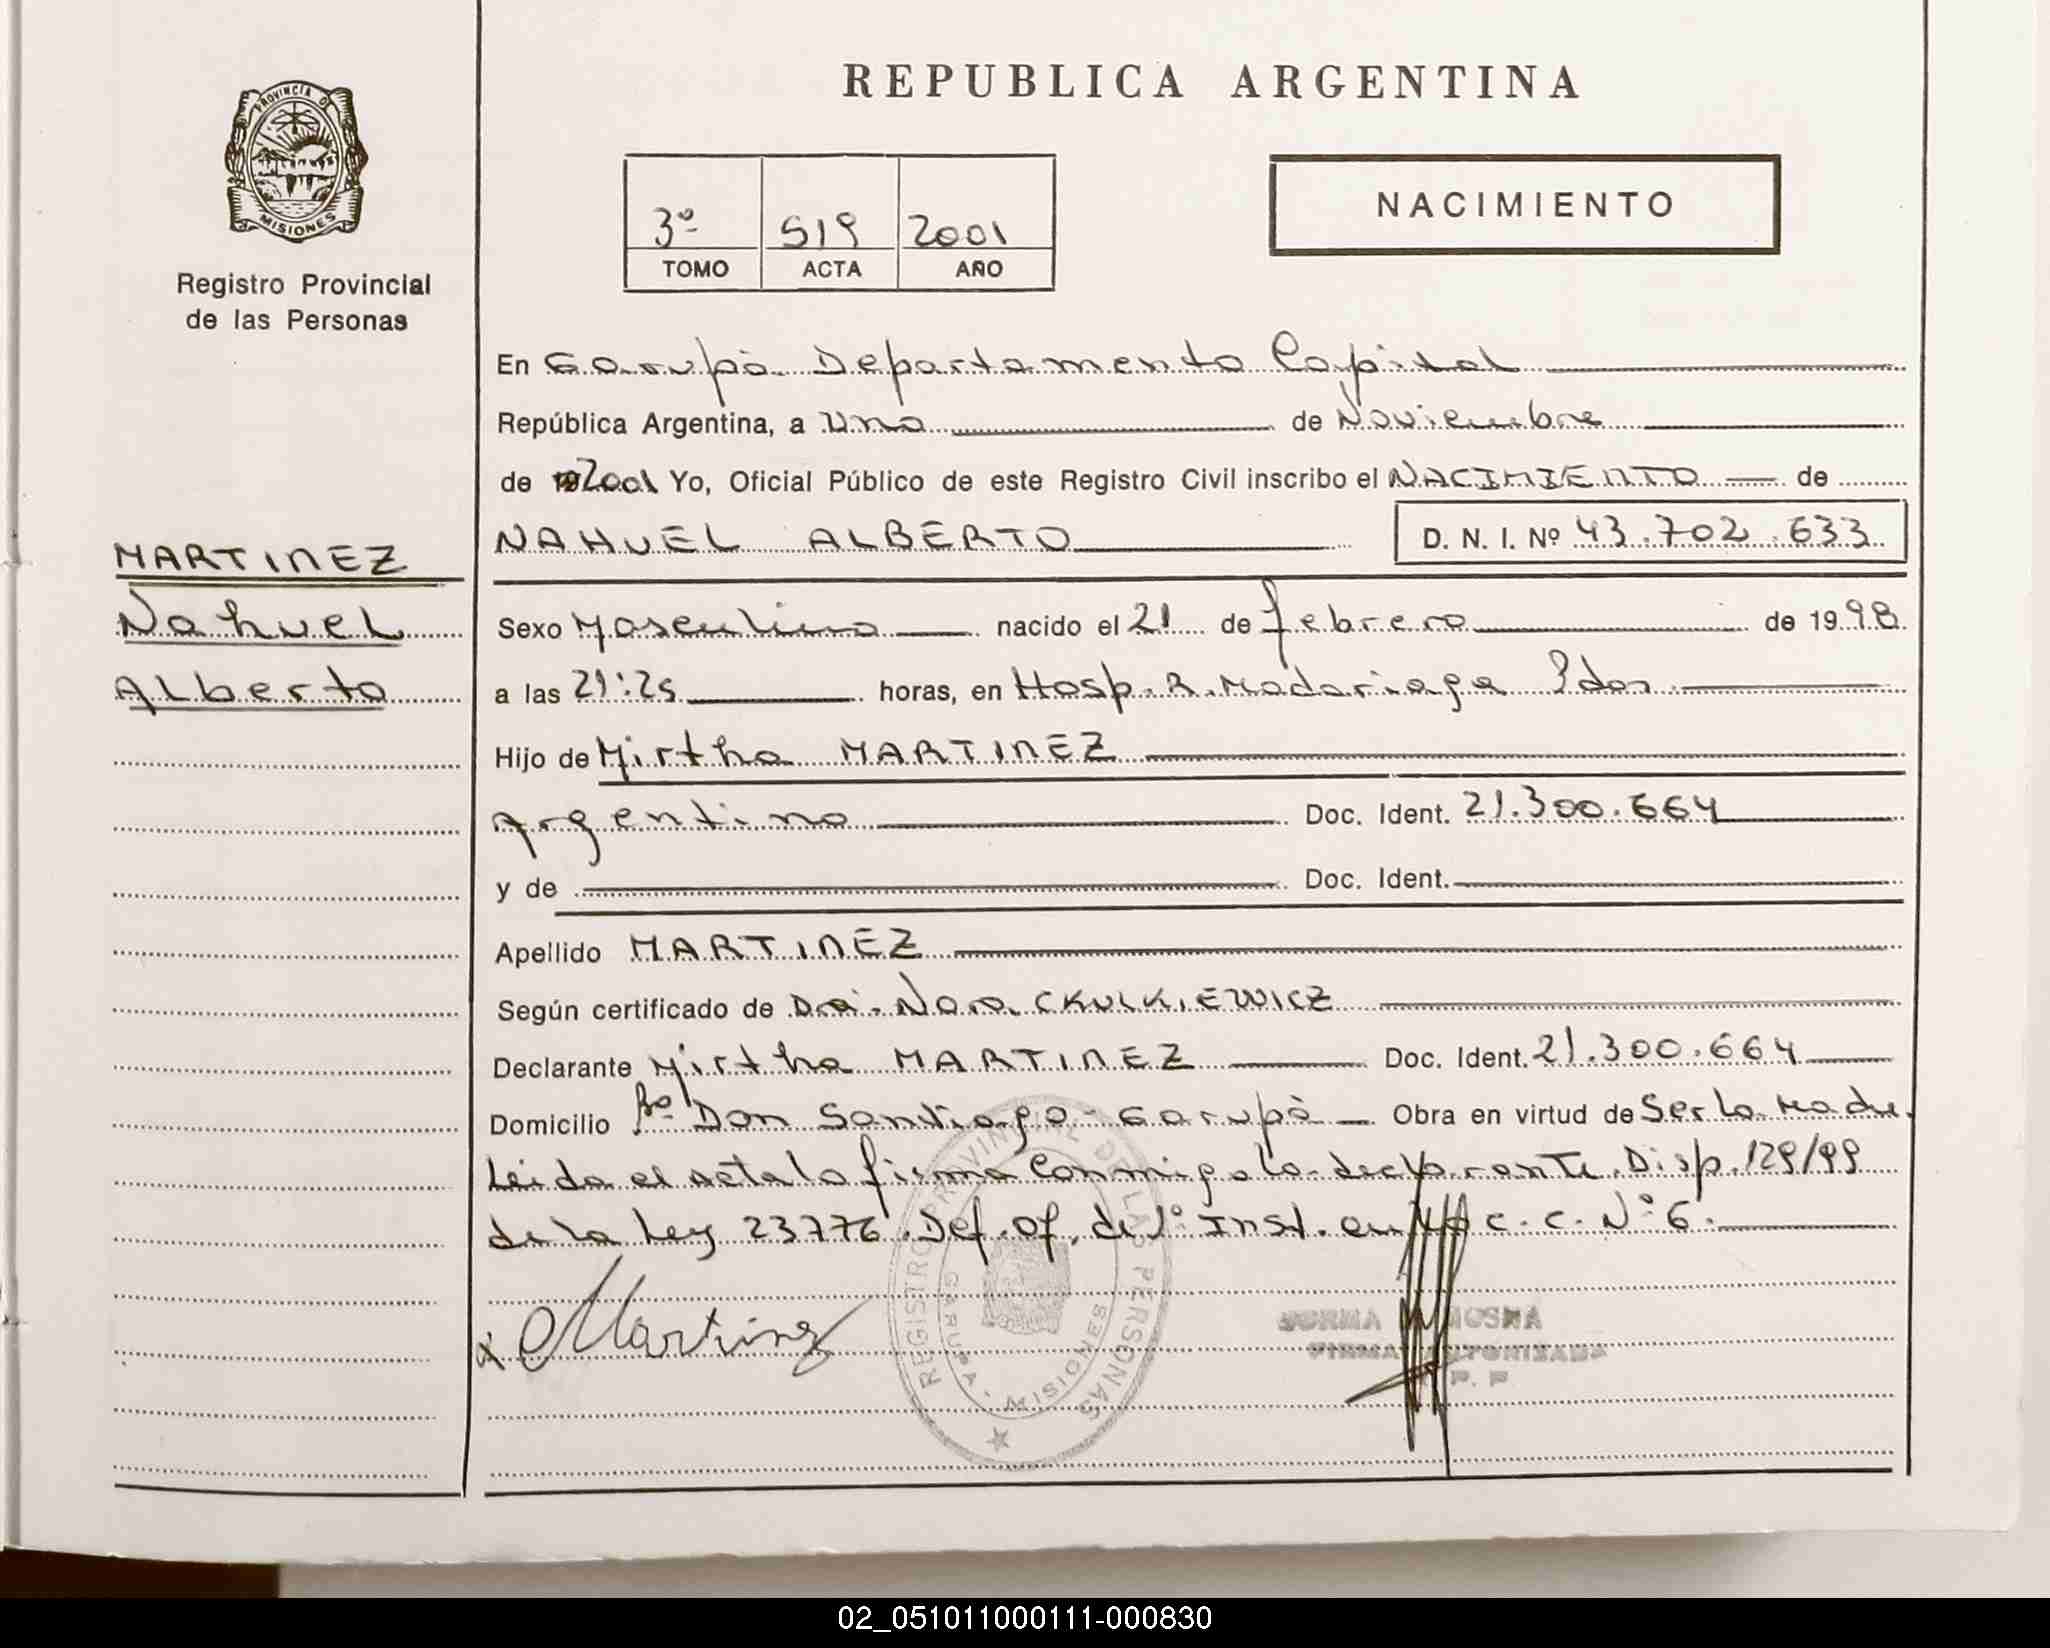 REPUBLICA ARGENTINA
PROVINCIA DE
MISIONES
Registro Provincial
de las Personas
3º 519 2001
TOMO ACTA AÑO
NACIMIENTO
En Garupá Departamento Capital
República Argentina, a Uno de Noviembre
de 2001 Yo, Oficial Público de este Registro Civil inscribo el NACIMIENTO de
NAHUEL ALBERTO D. N. I. Nº 43.702.633
MARTINEZ
Nahuel
Alberto
Sexo Masculino nacido el 21 de febrero de 1998
a las 21:25 horas, en Hosp. R. Madariaga Pdas
Hijo de Mirtha MARTINEZ
Argentina Doc. Ident. 21.300.664
y de Doc. Ident.
Apellido MARTINEZ
Según certificado de Dra. Nora CKULKIEWICZ
Declarante Mirtha MARTINEZ Doc. Ident. 21.300.664
Domicilio Bº Don Santiago - Garupá Obra en virtud de Ser la Madre.
Leida el acta la firma conmigo la declarante. Disp. 129/99
de la Ley 23776. Def. Of. de 1º Inst. en lo C. C. Nº 6.
x Martinez
REGISTRO PROVINCIAL DE LAS PERSONAS
GARUPA - MISIONES
NORMA MOSNA
FIRMA AUTORIZADA
02_051011000111-000830